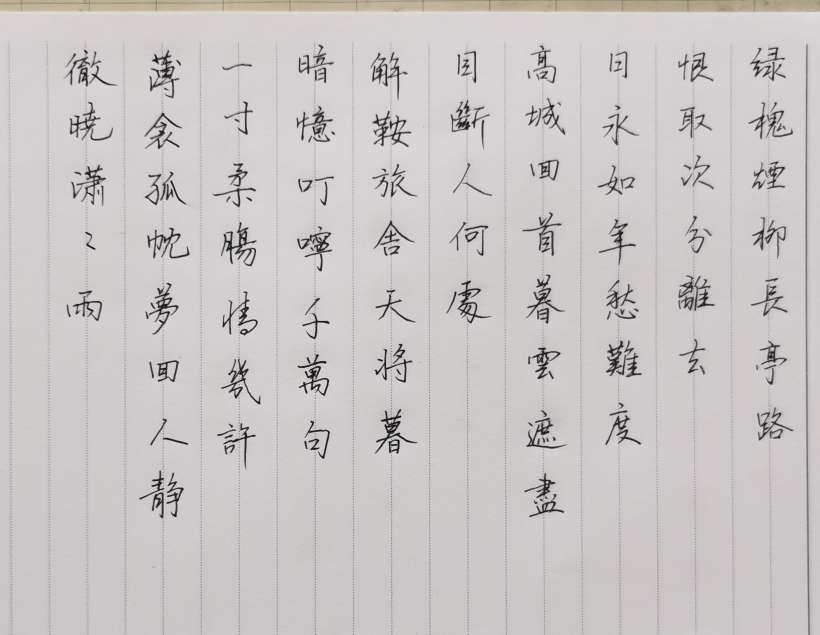 绿槐煙柳長亭路
恨取次分離去
日永如年愁難度
高城回首暮雲遮盡
目斷人何處
解鞍旅舍天将暮
暗憶叮嚀千萬句
一寸柔腸情幾許
薄衾孤枕夢回人静
徹曉潇〻雨